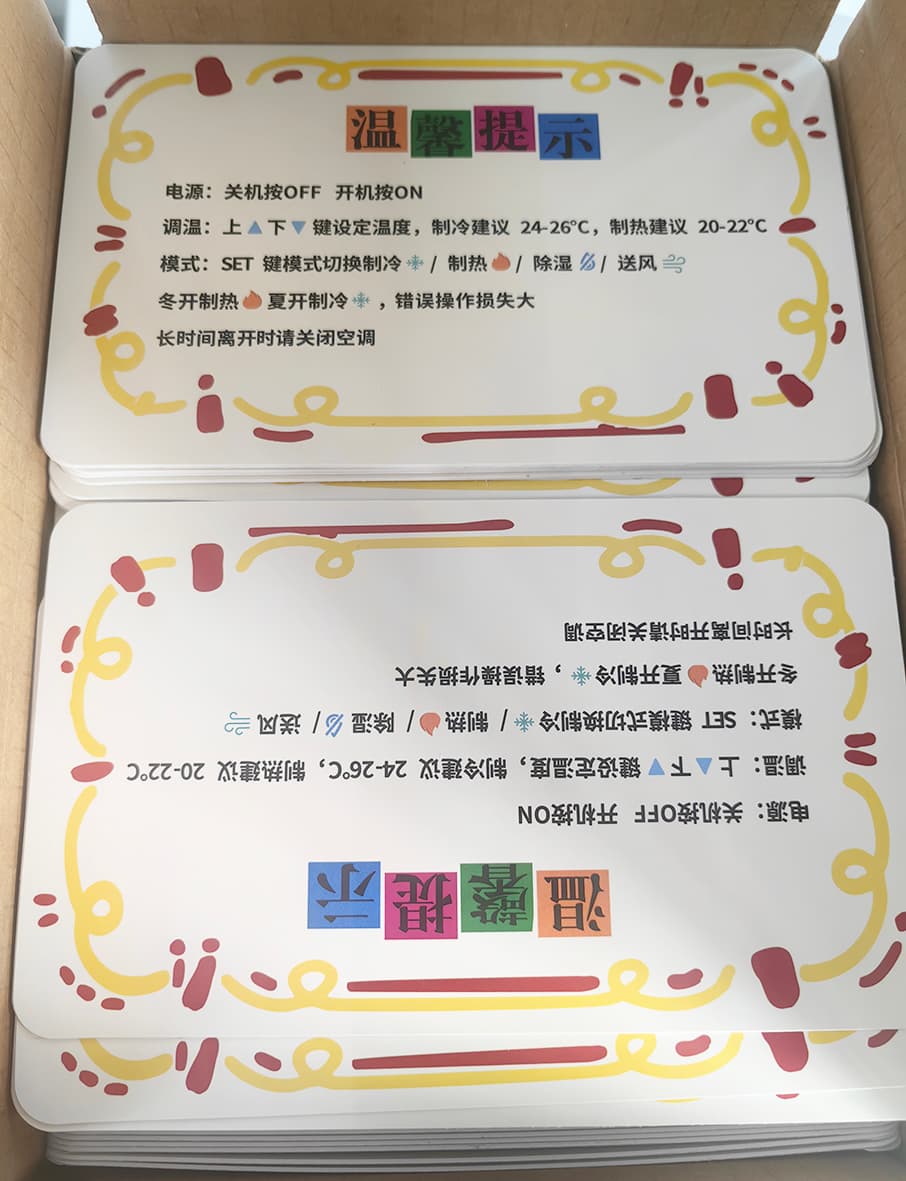 温馨提示
电源：关机按OFF 开机按ON
调温：上▲下▼键设定温度，制冷建议 24-26℃，制热建议 20-22℃
模式：SET 键模式切换制冷❄/ 制热🔥/ 除湿/ 送风
冬开制热🔥夏开制冷❄，错误操作损失大
长时间离开时请关闭空调
温馨提示
电源：关机按OFF 开机按ON
调温：上▲下▼键设定温度，制冷建议 24-26℃，制热建议 20-22℃
模式：SET 键模式切换制冷❄/ 制热🔥/ 除湿/ 送风
冬开制热🔥夏开制冷❄，错误操作损失大
长时间离开时请关闭空调